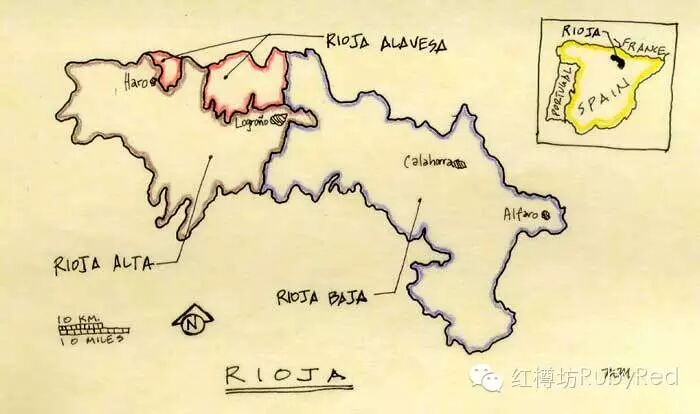 RIOJA ALAVESA
RIOJA
FRANCE
PORTUGAL
SPAIN
Haro
Logroño
Calahorra
Alfaro
RIOJA ALTA
RIOJA BAJA
10 KM.
10 MILES
N
RIOJA
红樽坊RubyRed